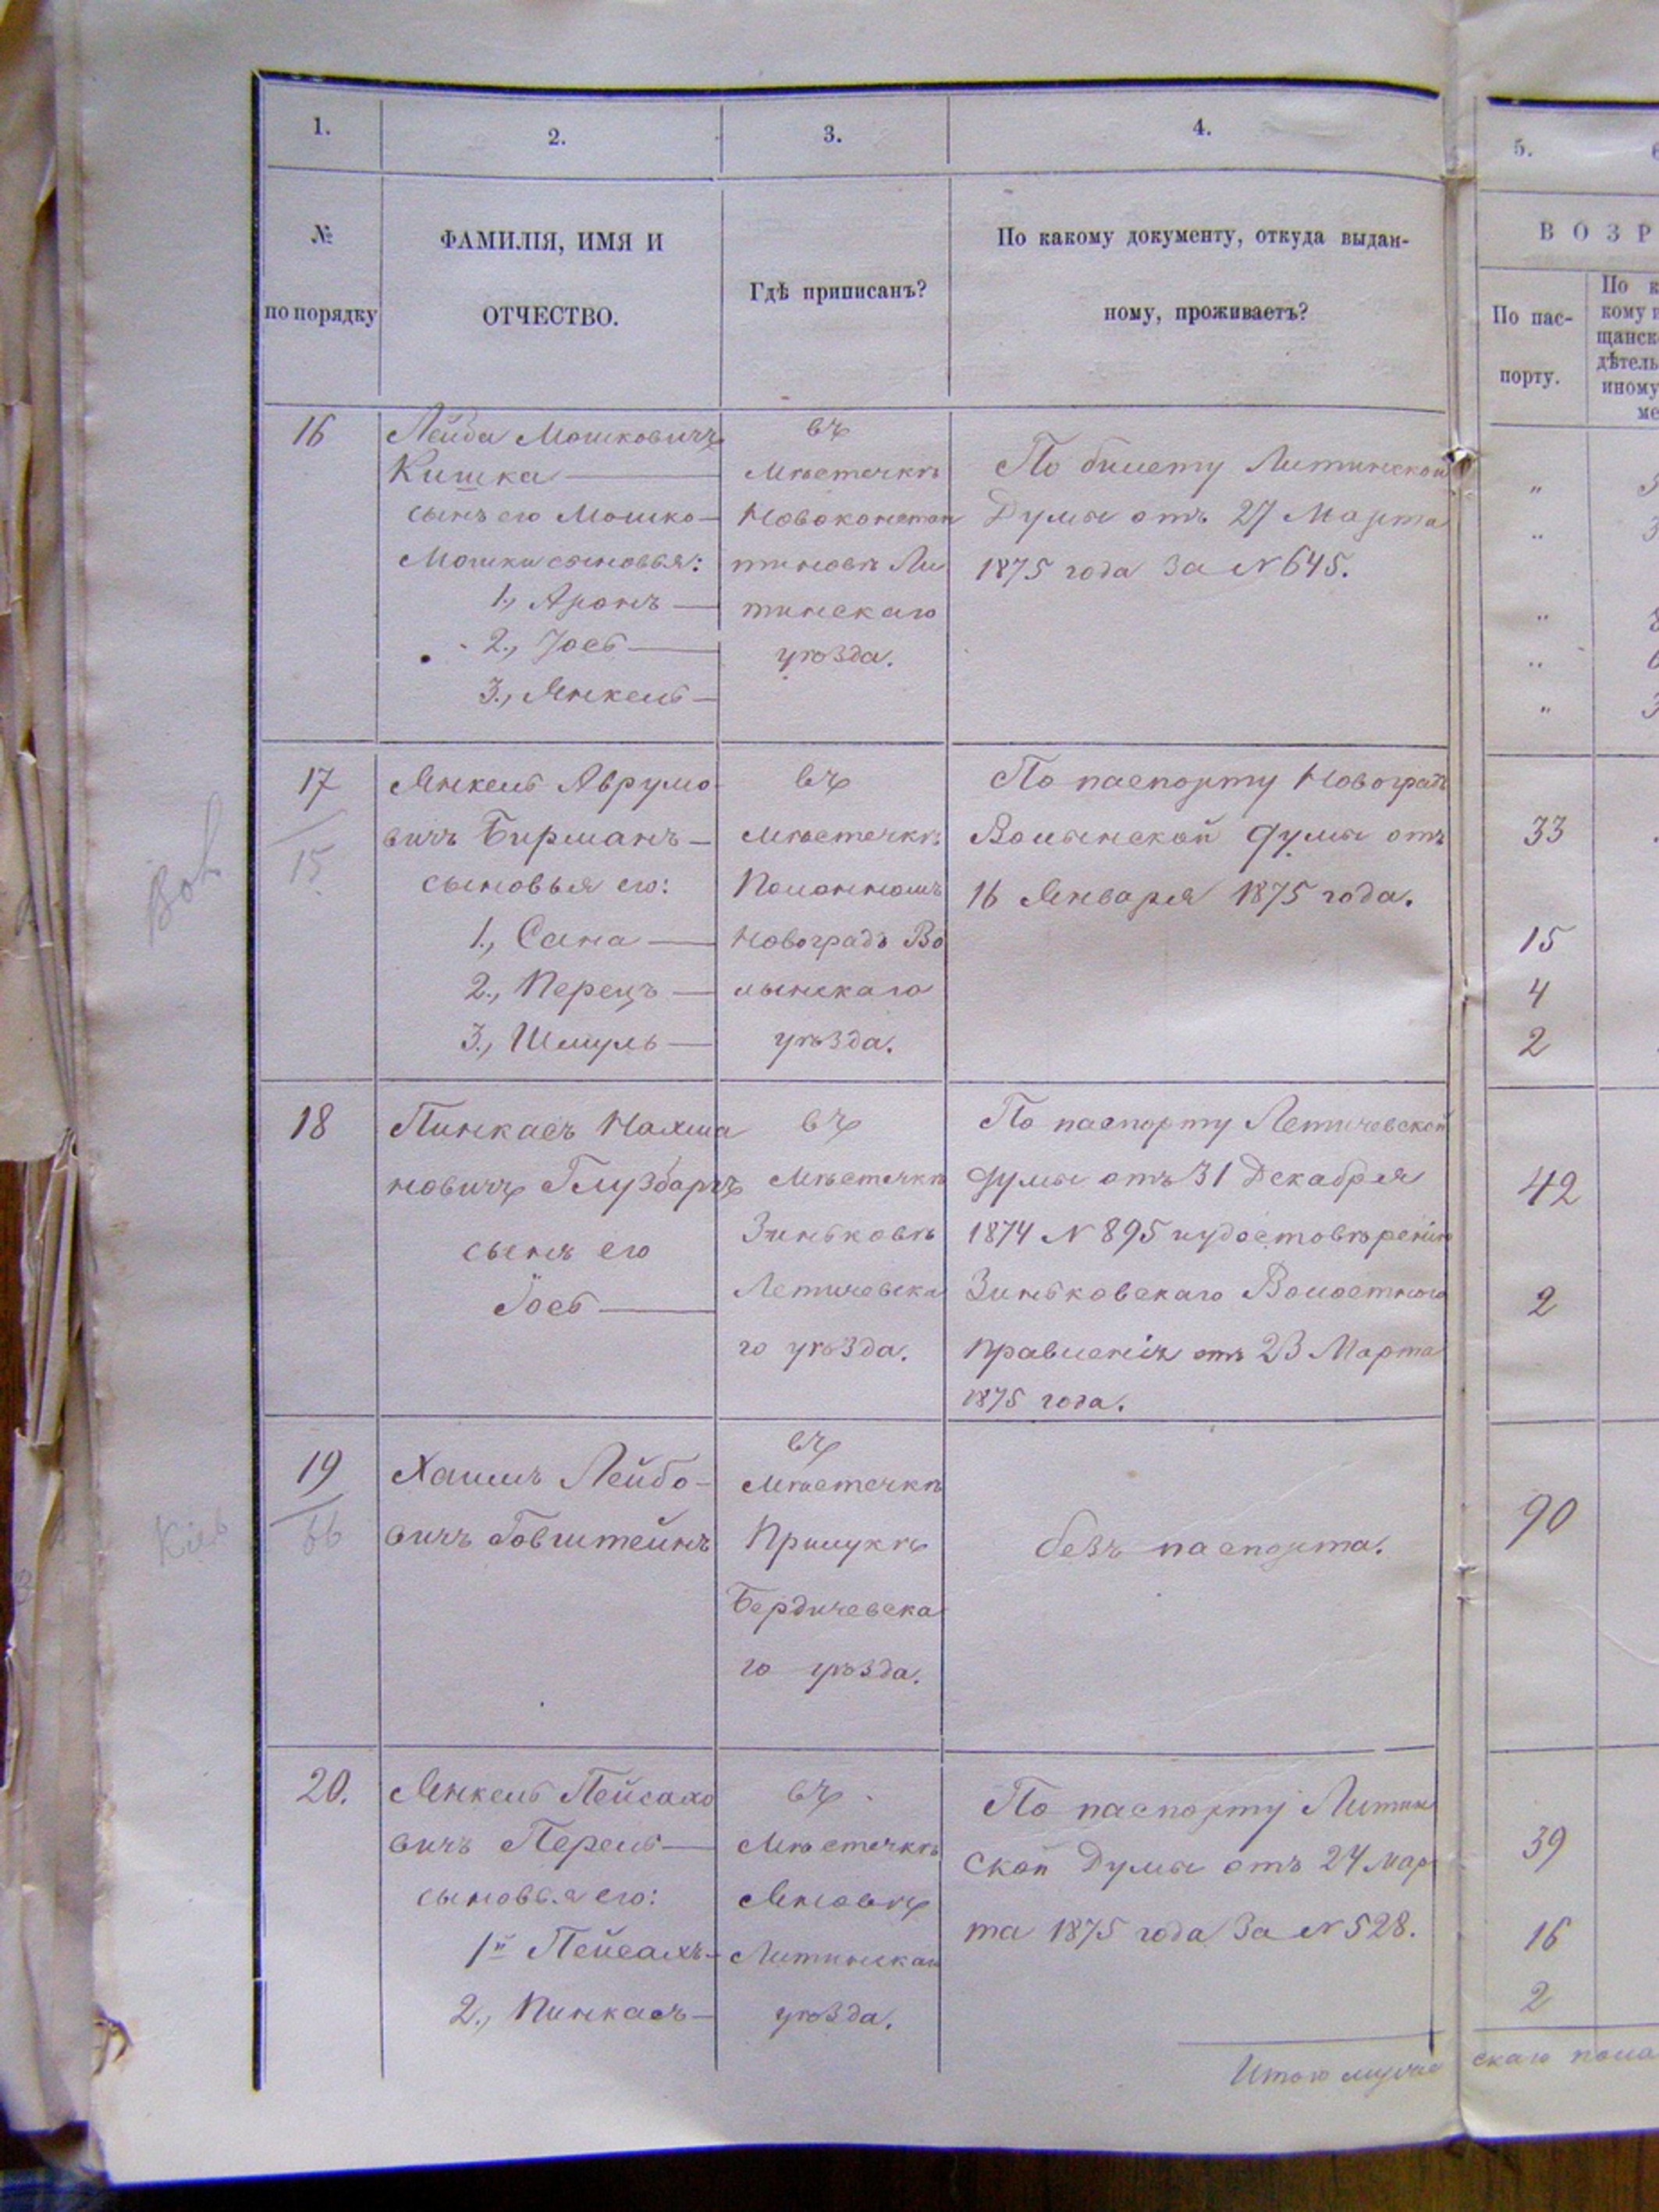 1.
2.
3.
4.
5.
№
по порядку
ФАМИЛІЯ, ИМЯ И
ОТЧЕСТВО.
Гдѣ приписанъ?
По какому документу, откуда выдан-
ному, проживаетъ?
ВОЗР
По пас-
порту.
16
Лейба Мошковичъ
Кишка
сынъ его Мошко
Мошки сыновья:
1., Аронъ
2., Іось
3., Янкель
въ
Мѣстечкѣ
Новоконстан
тиновѣ Ли
тинскаго
уѣзда.
По билету Литинской
Думы отъ 27 Марта
1875 года за №645.
17
15
Янкель Аврумо
вичъ Бирманъ
сыновья его:
1., Сана
2., Перецъ
3., Шмуль
въ
Мѣстечкѣ
Полонномъ
Новоградъ Во
лынскаго
уѣзда.
По паспорту Новоградъ
Волынской Думы отъ
16 Января 1875 года.
33
15
4
2
18
Пинкасъ Нахма
новичъ Глузбаргъ
сынъ его
Іось
въ
Мѣстечкѣ
Зиньковѣ
Летичевска
го уѣзда.
По паспорту Летичевской
Думы отъ 31 Декабря
1874 №895 и удостовѣренію
Зиньковскаго Волостного
Правленія отъ 23 Марта
1875 года.
42
2
19
66
Кіев
Хаимъ Лейбо-
вичъ Говштейнъ
въ
Мѣстечкѣ
Прилукѣ
Бердичевска
го уѣзда.
безъ паспорта.
90
20.
Янкель Пейсахо
вичъ Перель
сыновья его:
1й Пейсахъ
2., Пинкасъ
въ
Мѣстечкѣ
Яновѣ
Литинскаго
уѣзда.
По паспорту Литин
ской Думы отъ 24 Мар
та 1875 года за №528.
39
16
2
Итого мужескаго пола